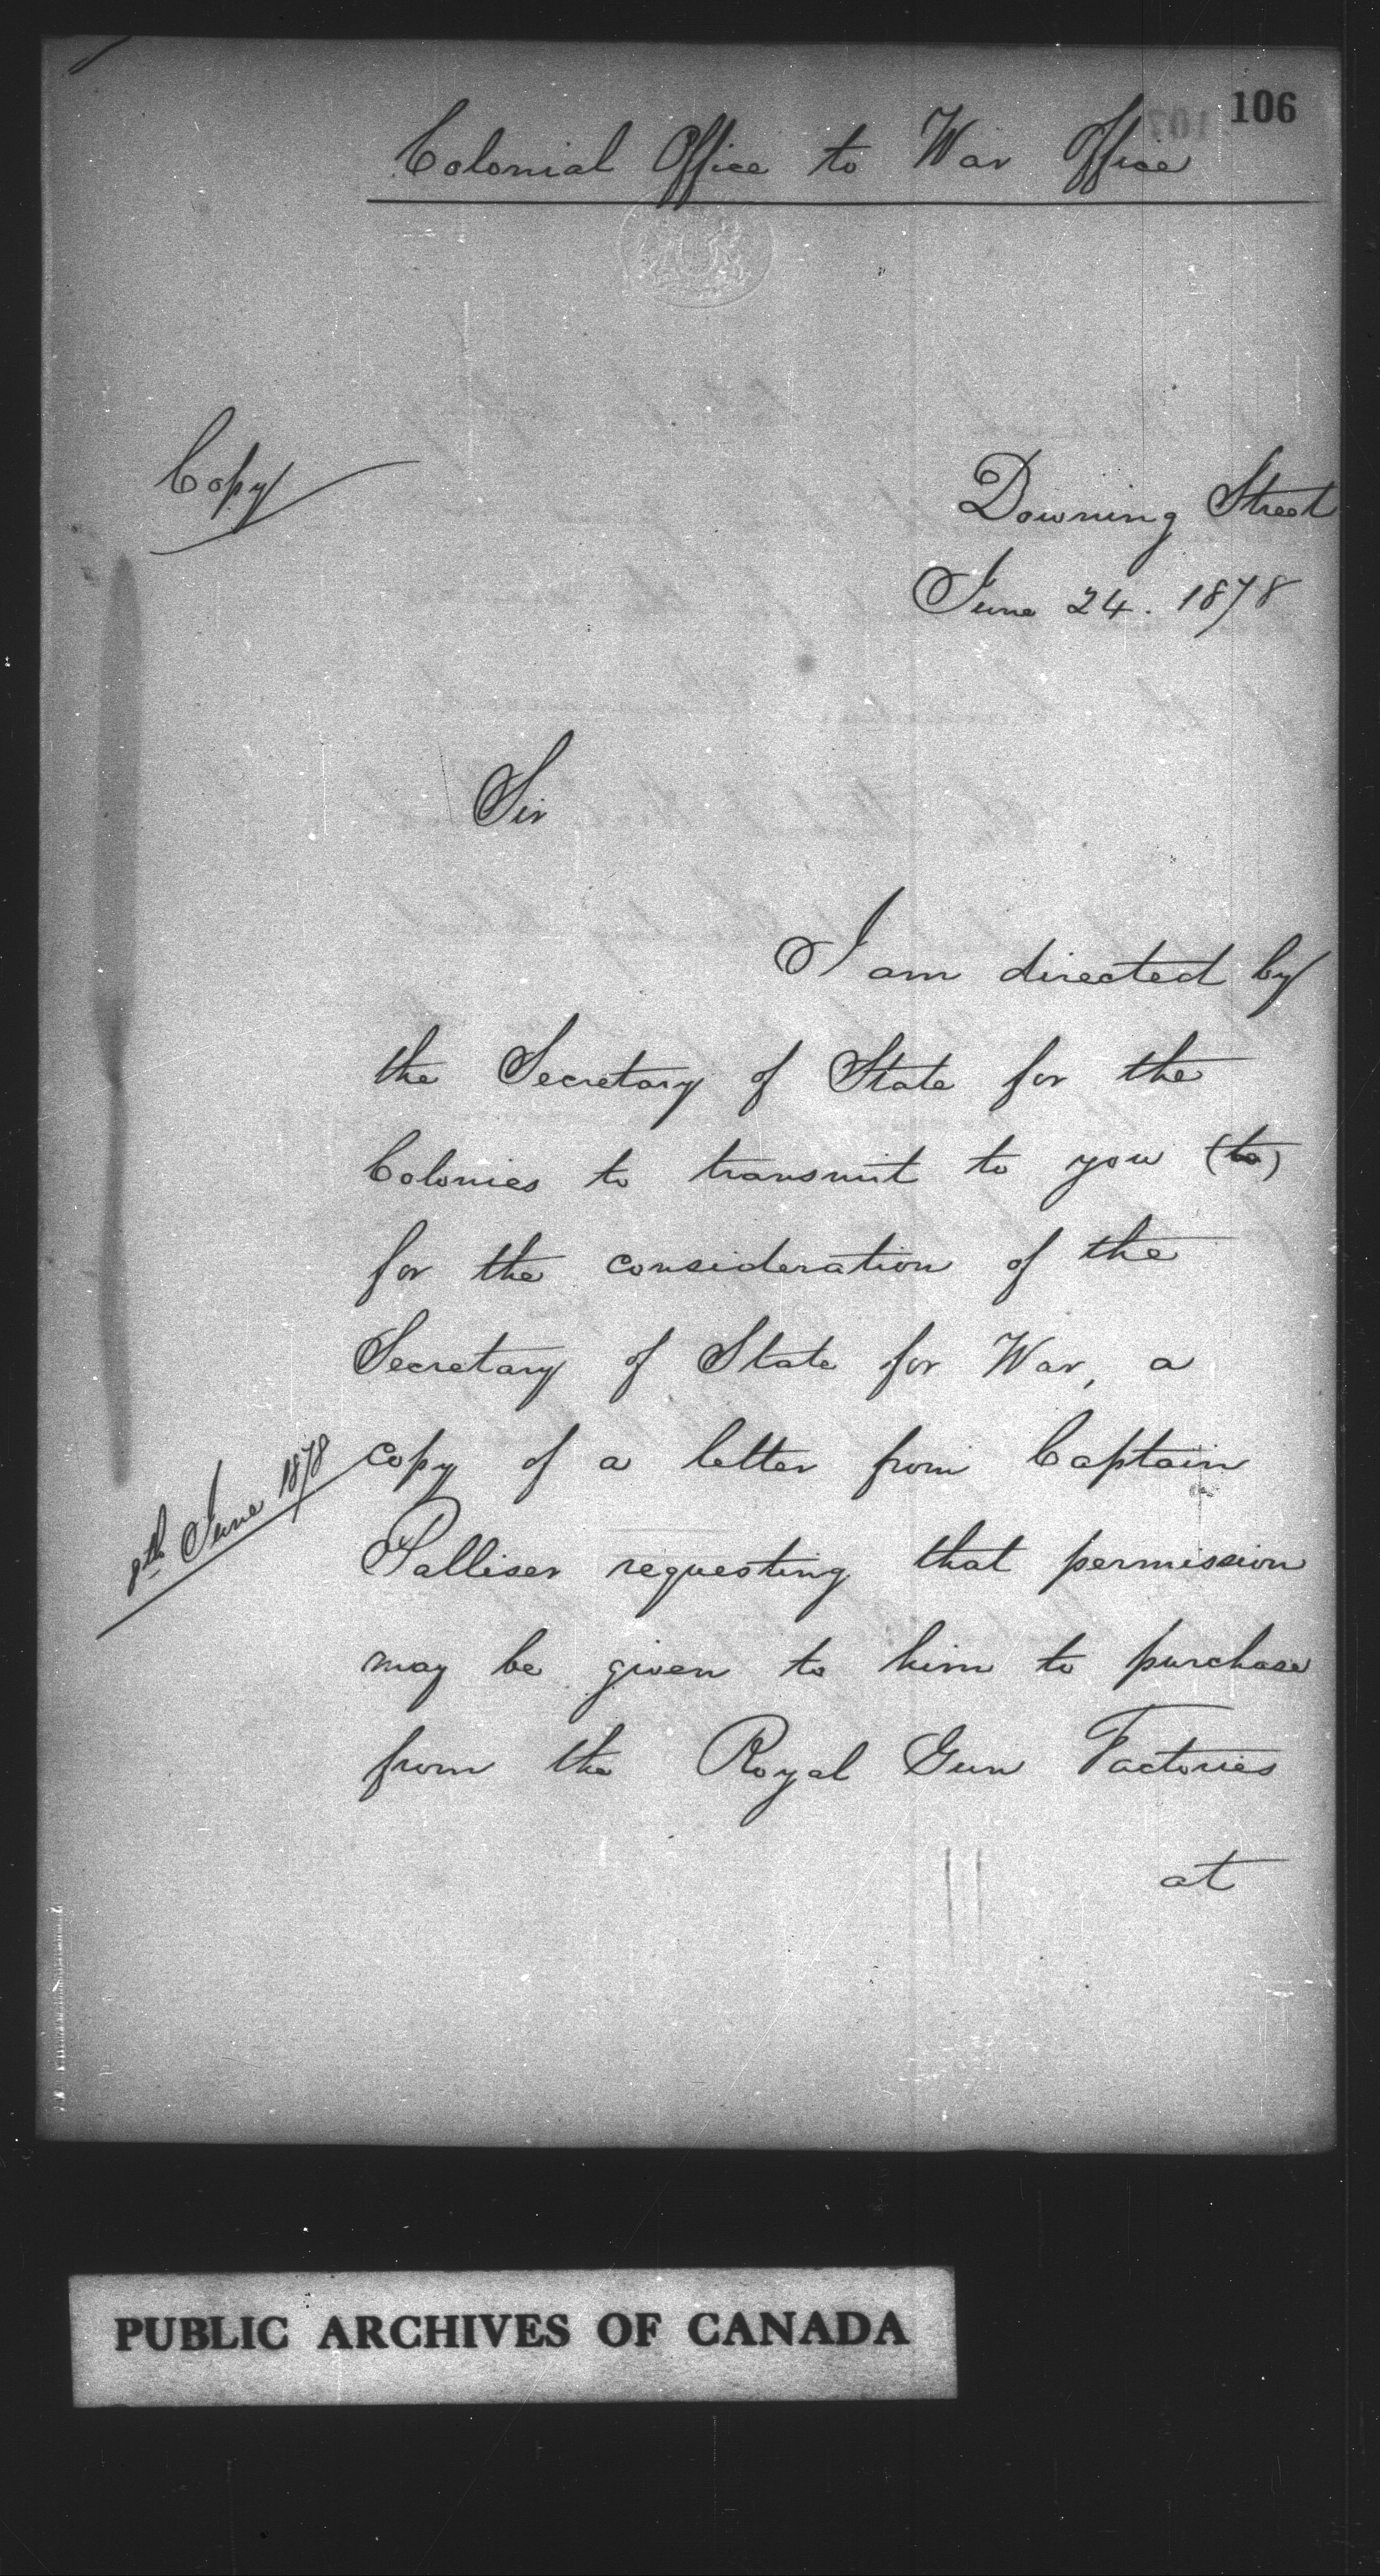 106
Colonial Office to War Office
Copy
Downing Street
June 24. 1878
Sir
I am directed by
the Secretary of State for the
Colonies to transmit to you (to)
for the consideration of the
Secretary of State for War, a
8th June 1878
copy of a letter from Captain
Palliser requesting that permission
may be given to him to purchase
from the Royal Gun Factories
at
PUBLIC ARCHIVES OF CANADA